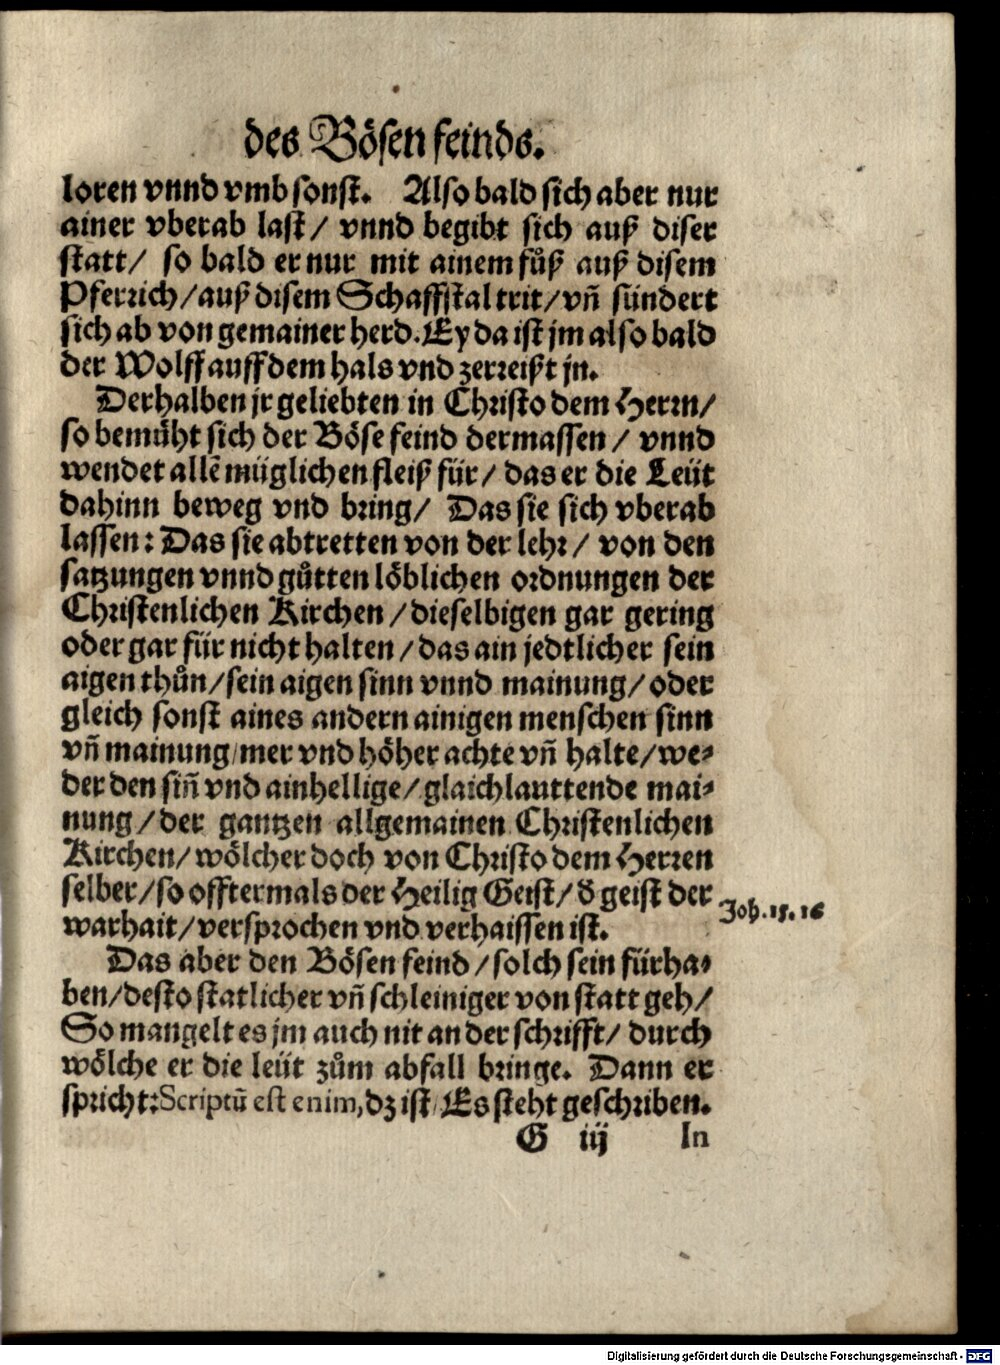 des Bösen feinds.
loren vnnd vmb sonst. Also bald sich aber nur
ainer vberab last / vnnd begibt sich auß diser
statt / so bald er nur mit ainem fůß auß disem
Pferrich / auß disem Schaffstal trit / vn̄ sündert
sich ab von gemainer herd. Ey da ist jm also bald
der Wolff auff dem hals vnd zerreißt jn.
Derhalben jr geliebten in Christo dem Herrn /
so bemüht sich der Böse feind dermassen / vnnd
wendet allē müglichen fleiß für / das er die Leüt
dahinn beweg vnd bring / Das sie sich vberab
lassen: Das sie abtretten von der lehr / von den
satzungen vnnd gůtten löblichen ordnungen der
Christenlichen Kirchen / dieselbigen gar gering
oder gar für nicht halten / das ain jedtlicher sein
aigen thůn / sein aigen sinn vnnd mainung / oder
gleich sonst aines andern ainigen menschen sinn
vn̄ mainung / mer vnd höher achte vn̄ halte / we⸗
der den sin̄ vnd ainhellige / glaichlauttende mai⸗
nung / der gantzen allgemainen Christenlichen
Kirchen / wölcher doch von Christo dem Herren
selber / so offtermals der Heilig Geist / d̄ geist der
warhait / versprochen vnd verhaissen ist.
Joh. 15. 16
Das aber den Bösen feind / solch sein fürha⸗
ben / desto statlicher vn̄ schleiniger von statt geh /
So mangelt es jm auch nit an der schrifft / durch
wölche er die leüt zům abfall bringe. Dann er
spricht: Scriptū est enim, dz ist / Es steht geschriben.
G iij In
Digitalisierung gefördert durch die Deutsche Forschungsgemeinschaft - DFG